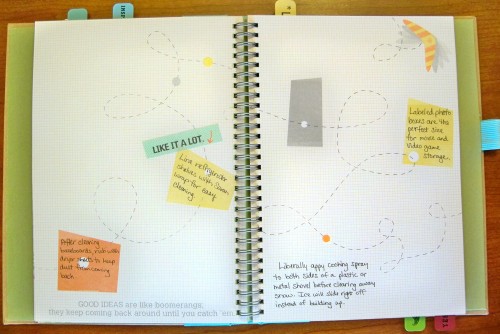 LIKE IT A LOT.
Line refrigerator
shelves with Saran
wrap for easy
cleaning
After cleaning
baseboards, rub with
dryer sheets to keep
dust from coming
back.
GOOD IDEAS are like boomerangs;
they keep coming back around until you catch 'em
Labeled photo
boxes are the
perfect size
for movie and
video game
storage.
Liberally apply cooking spray
to both sides of a plastic or
metal shovel before clearing away
snow. Ice will slide right off
instead of building up.